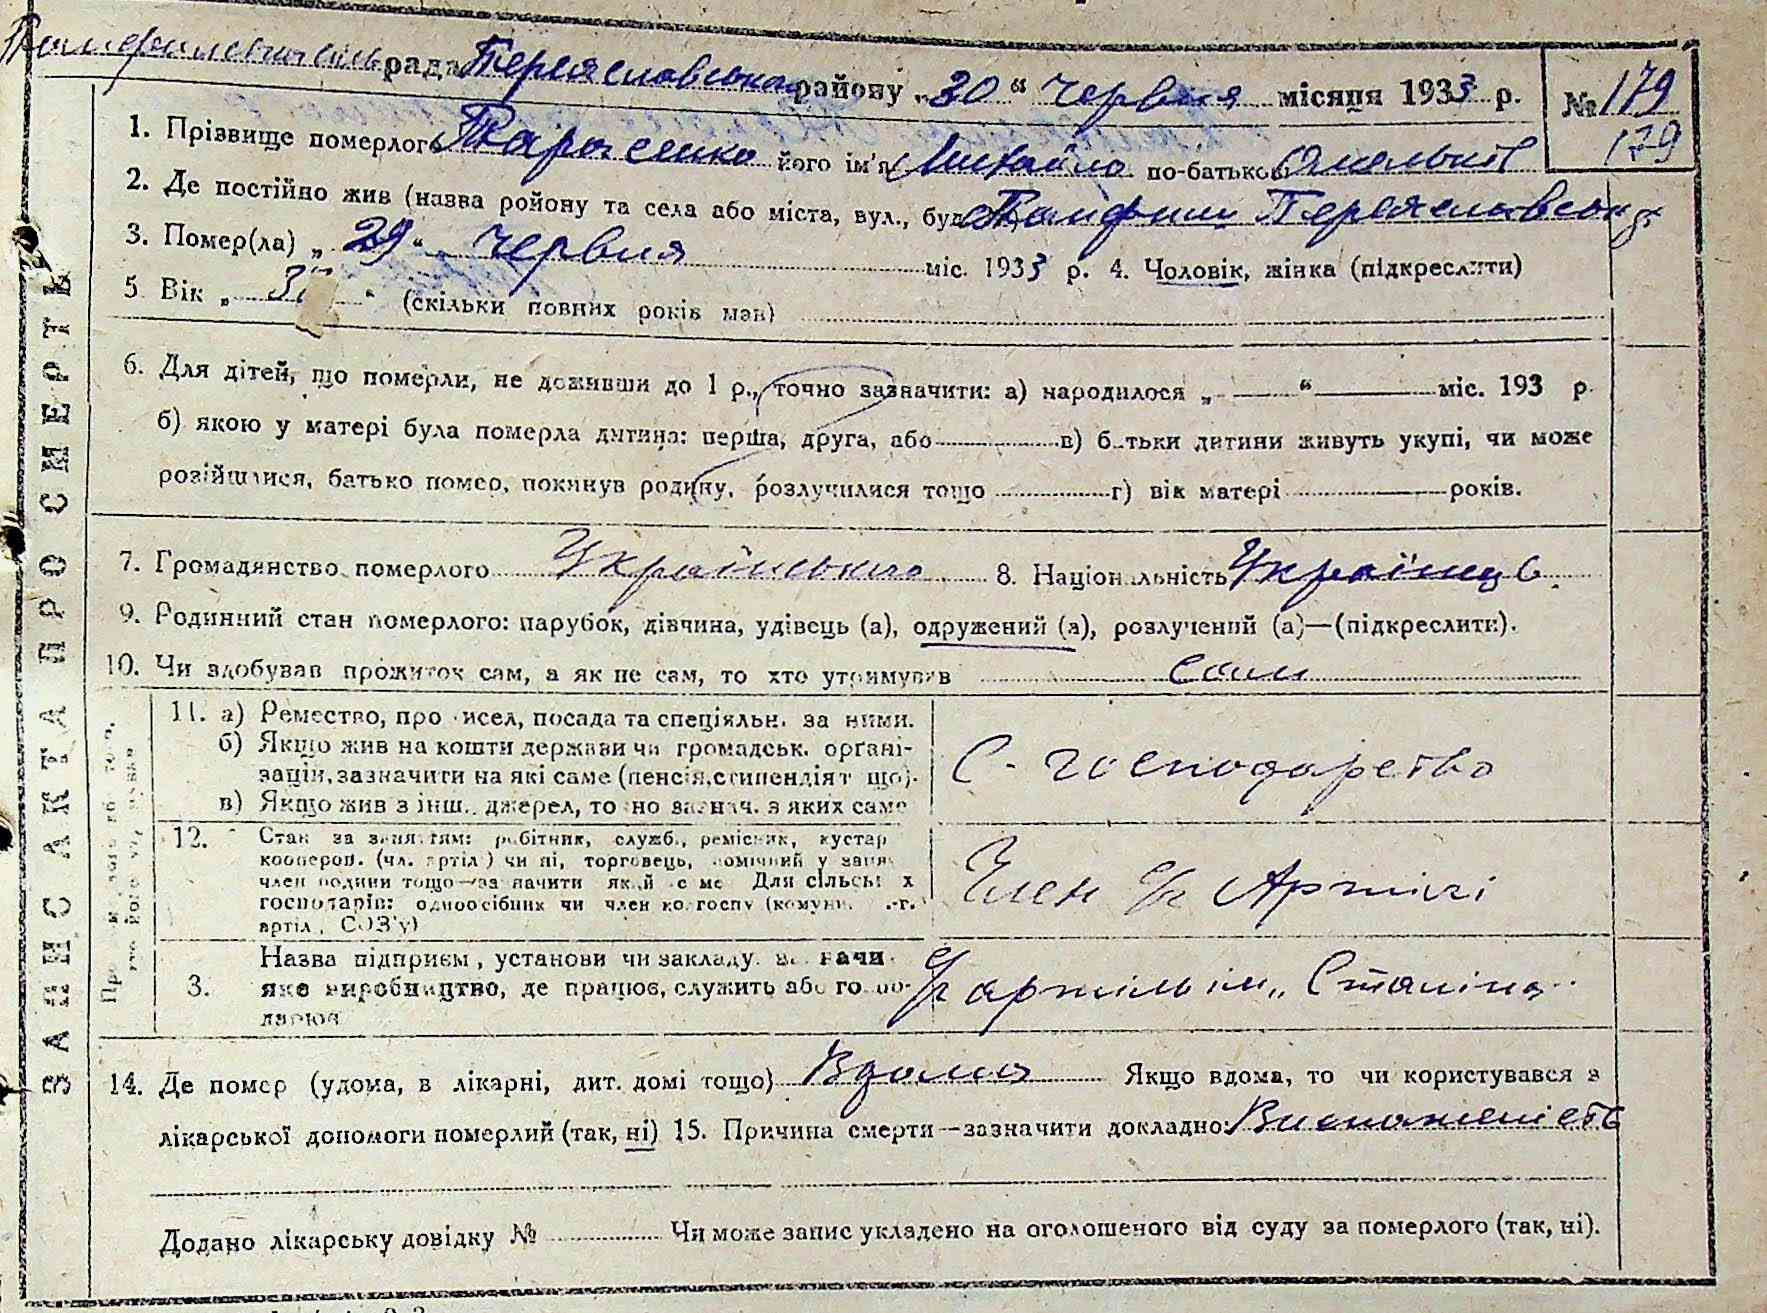 рада Переяславського району „30“ Червня місяця 1933 р. № 179
179
1. Прізвище померлого Тарасенко його ім'я Михайло по-батькові Омелькович
2. Де постійно жив (назва ройону та села або міста, вул., буд. Переяславськ
3. Помер(ла) „29“ Червня міс. 1933 р. 4. Чоловік, жінка (підкреслити)
5 Вік „ “ (скільки повних років мав)
6. Для дітей, що померли, не доживши до 1 р., точно зазначити: а) народилося „ “ міс. 193 р.
б) якою у матері була померла дитина: перша, друга, або в) б тьки дитини живуть укупі, чи може
розійшлися, батько помер, покинув родину, розлучилися тощо г) вік матері років.
7. Громадянство померлого Українського 8. Націон льність Українець.
9. Родинний стан померлого: парубок, дівчина, удівець (а), одружений (а), розлучений (а)—(підкреслити).
10. Чи здобував прожиток сам, а як не сам, то хто утримував сам
11. а) Ремество, про исел, посада та спеціяльн. за ними.
б) Якщо жив на кошти держави чи громадськ. органі-
зацій, зазначити на які саме (пенсія, стипендія т що).
в) Якщо жив з інш. джерел, то но зазнач. з яких саме
С-господарство
12. Стан за заняттям: робітник, служб., ремісник, кустар
кооперов. (чл. артіл) чи ні, торговець, помічний у заня
член родини тощо—за начити як й с ме Для сільськ х
господарів: одноосібник чи член колгоспу (комуни, .-г.
артіл, СОЗ'у)
Член с/г Артілі
3. Назва підприєм, установи чи закладу, начи
яке виробництво, де працює, служить або го о-
дарює
с/г артіль ім „Сталіна
14. Де помер (удома, в лікарні, дит. домі тощо) Вдома Якщо вдома, то чи користувався з
лікарської допомоги померлий (так, ні) 15. Причина смерти—зазначити докладно: Виснаженість
Додано лікарську довідку № Чи може запис укладено на оголошеного від суду за померлого (так, ні).
ЗАПИС АКТА ПРО СМЕРТЬ